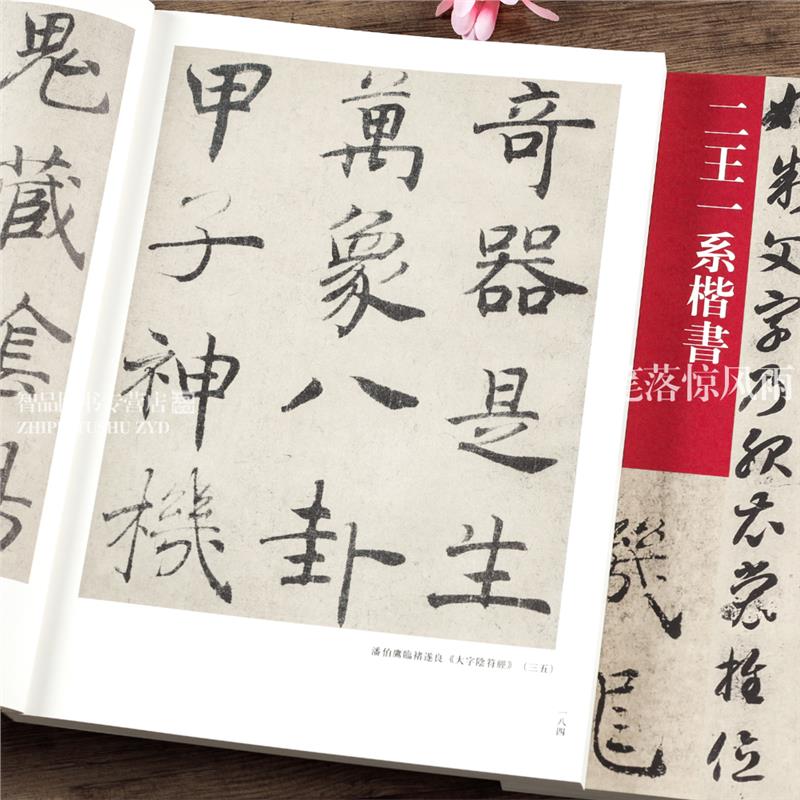 奇器是生
萬象八卦
甲子神機
鬼藏
潘伯鷹臨褚遂良《大字陰符經》（三五）
一八四
二王一系楷書
制文字乃服衣裳推位
笔落惊风雨
智品图书专营店
ZHIPINTUSHU ZYD